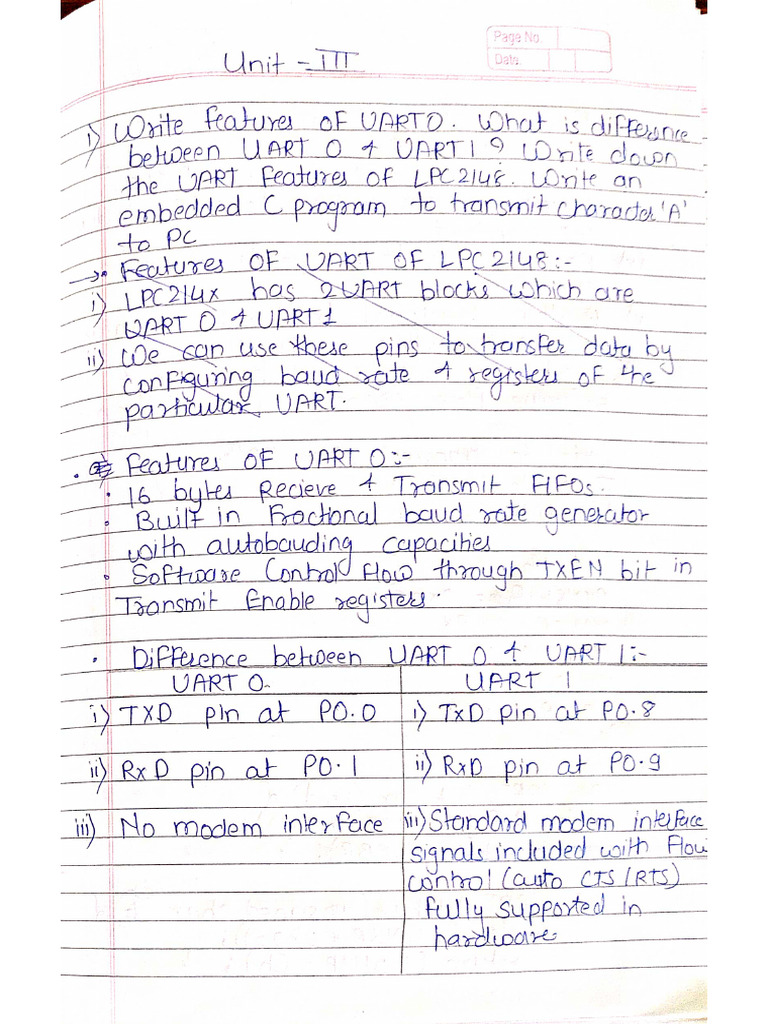 Page No.
Date.
Unit - III
i) Write features of UART0. What is difference
between UART 0 & UART1? Write down
the UART features of LPC2148. Write an
embedded C program to transmit character 'A'
to PC
→ • Features of UART of LPC2148:-
i) LPC214x has 2 UART blocks which are
UART 0 & UART 1
ii) We can use these pins to transfer data by
configuring baud rate & registers of the
particular UART.
• Features of UART 0:-
• 16 bytes Recieve & Transmit FIFOs.
• Built in Fractional baud rate generator
with autobauding capacities
• Software Control Flow through TXEN bit in
Transmit Enable registers.
• Difference between UART 0 & UART 1:-
UART 0. UART 1
i) TXD pin at P0.0 i) TxD pin at P0.8
ii) RxD pin at P0.1 ii) RxD pin at P0.9
iii) No modem interface iii) Standard modem interface
signals included with Flow
control (auto CTS/RTS)
fully supported in
hardware.